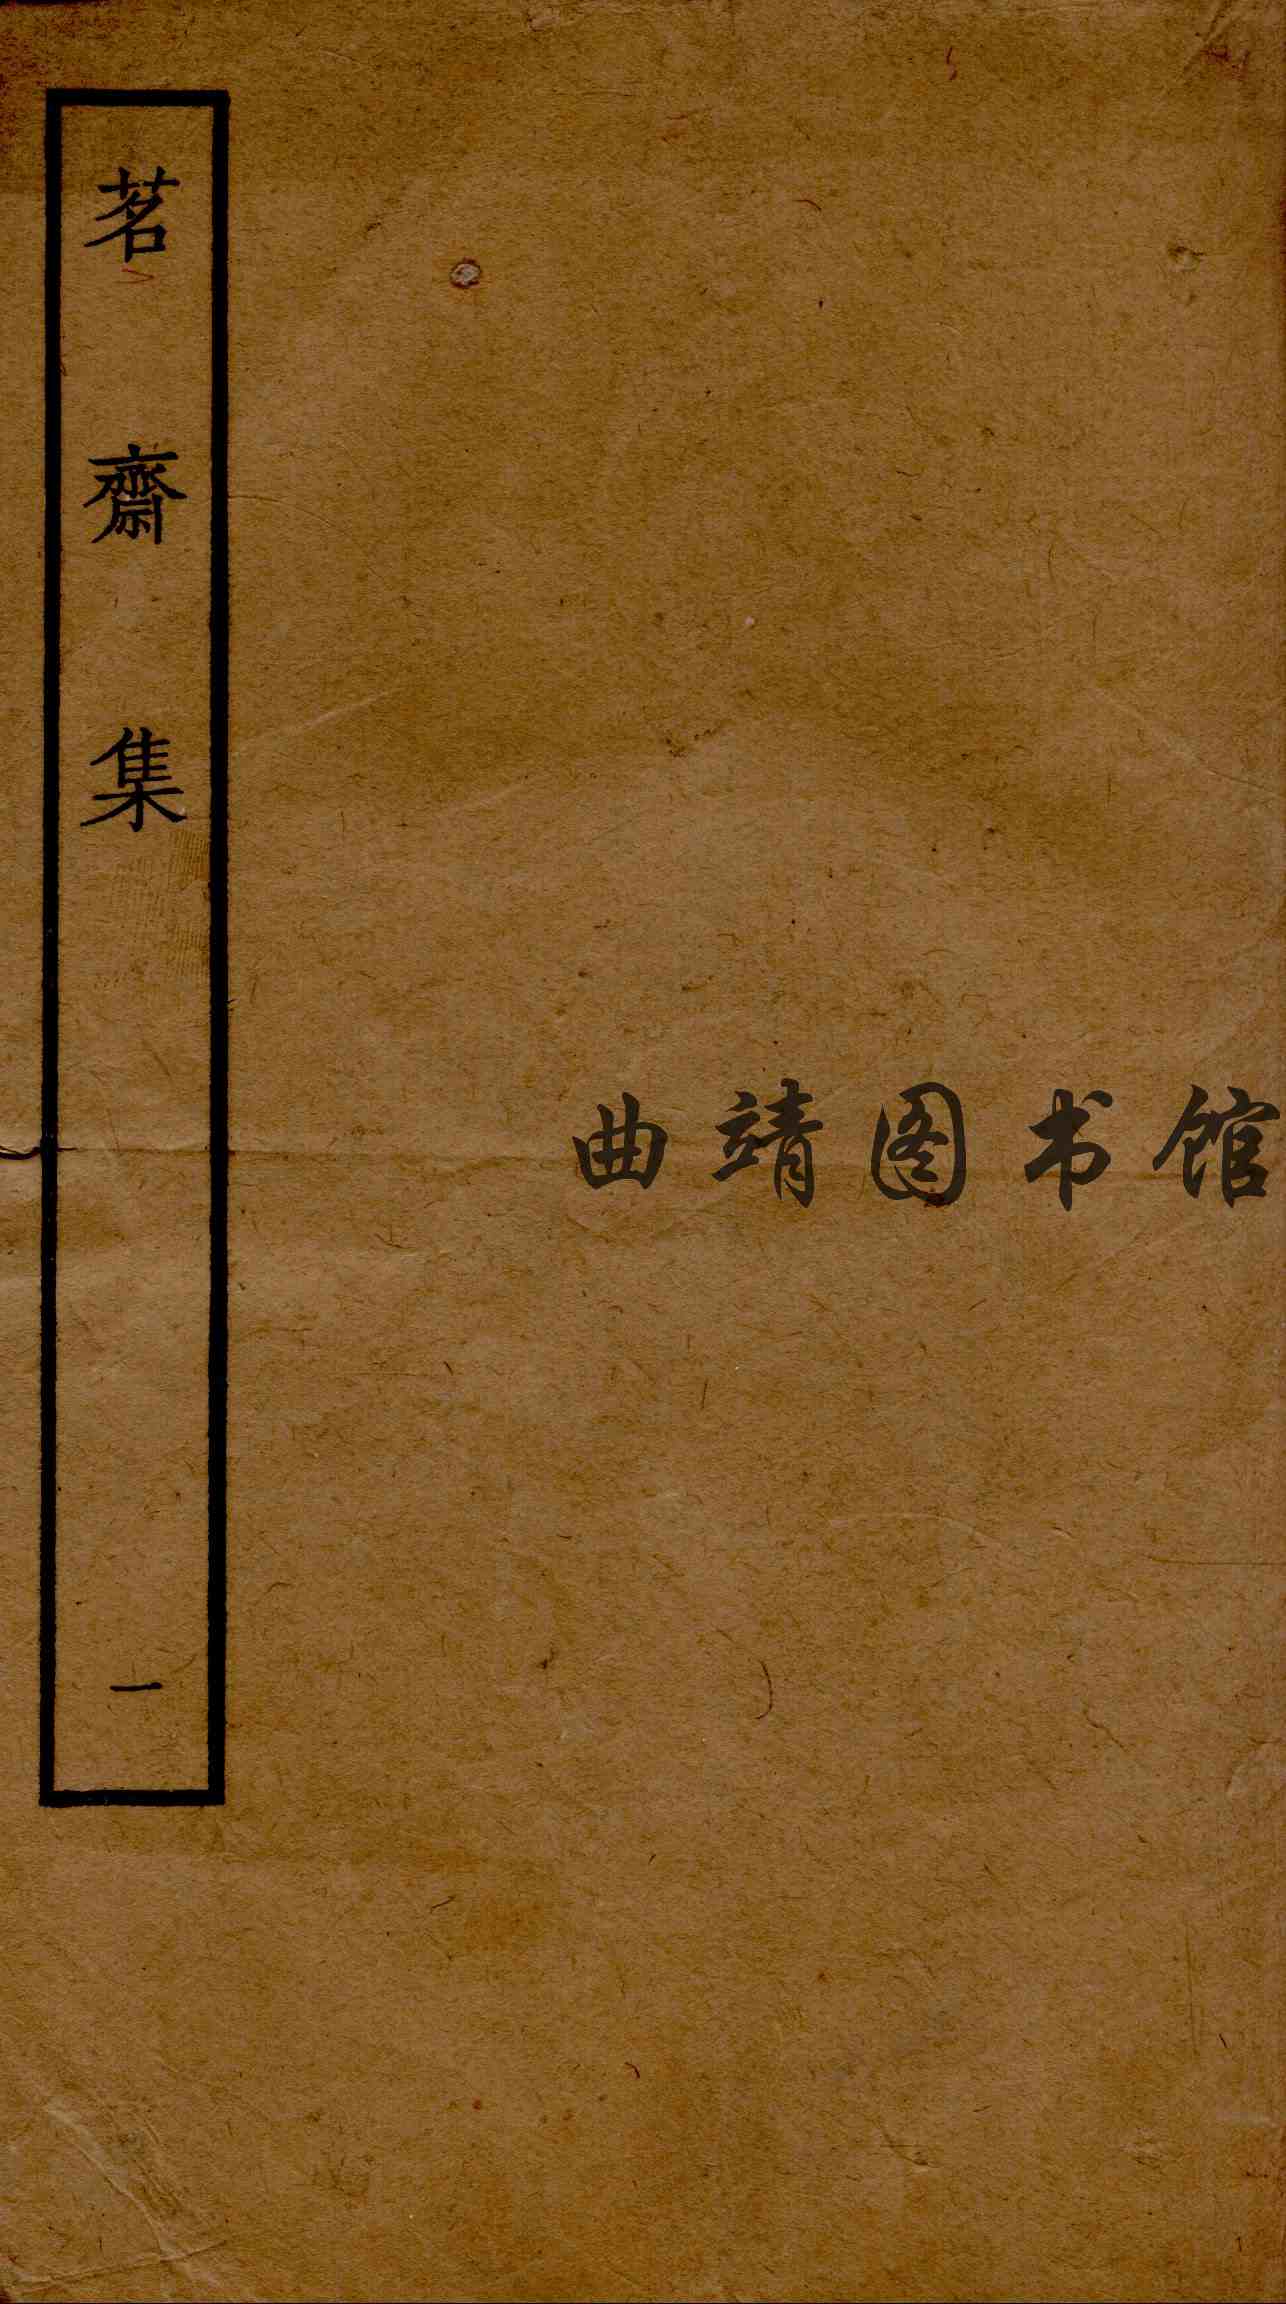 茗齋集
一
曲靖图书馆